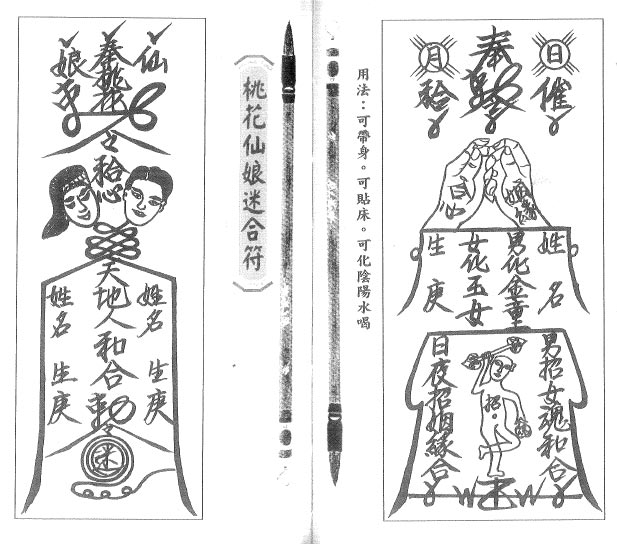 日催
奉
月
姓名
男化金童
女化玉女
生庚
男招女魂和合
招
日夜招姻緣合
用法：可帶身。可貼床。可化陰陽水喝
桃花仙娘迷合符
仙
奉桃花
娘
心
天地人和合
姓名 生庚
姓名 生庚
迷